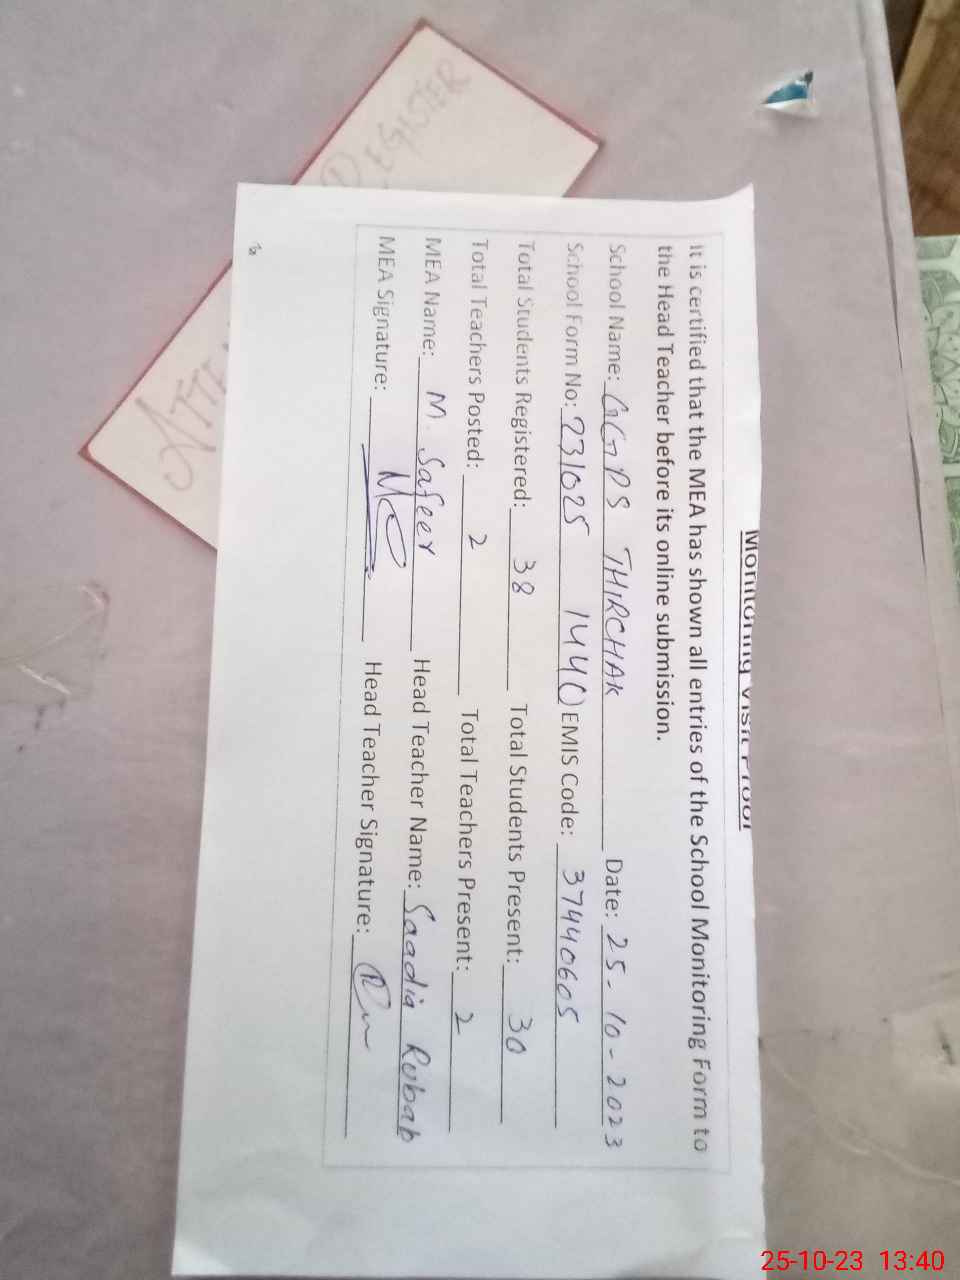 Monitoring Visit Proof
It is certified that the MEA has shown all entries of the School Monitoring Form to
the Head Teacher before its online submission.
School Name: GGPS THIRCHAK Date: 25-10-2023
School Form No: 231025 1440 EMIS Code: 37440605
Total Students Registered: 38 Total Students Present: 30
Total Teachers Posted: 2 Total Teachers Present: 2
MEA Name: M. Safeer Head Teacher Name: Saadia Rubab
MEA Signature: Head Teacher Signature:
REGISTER
25-10-23 13:40